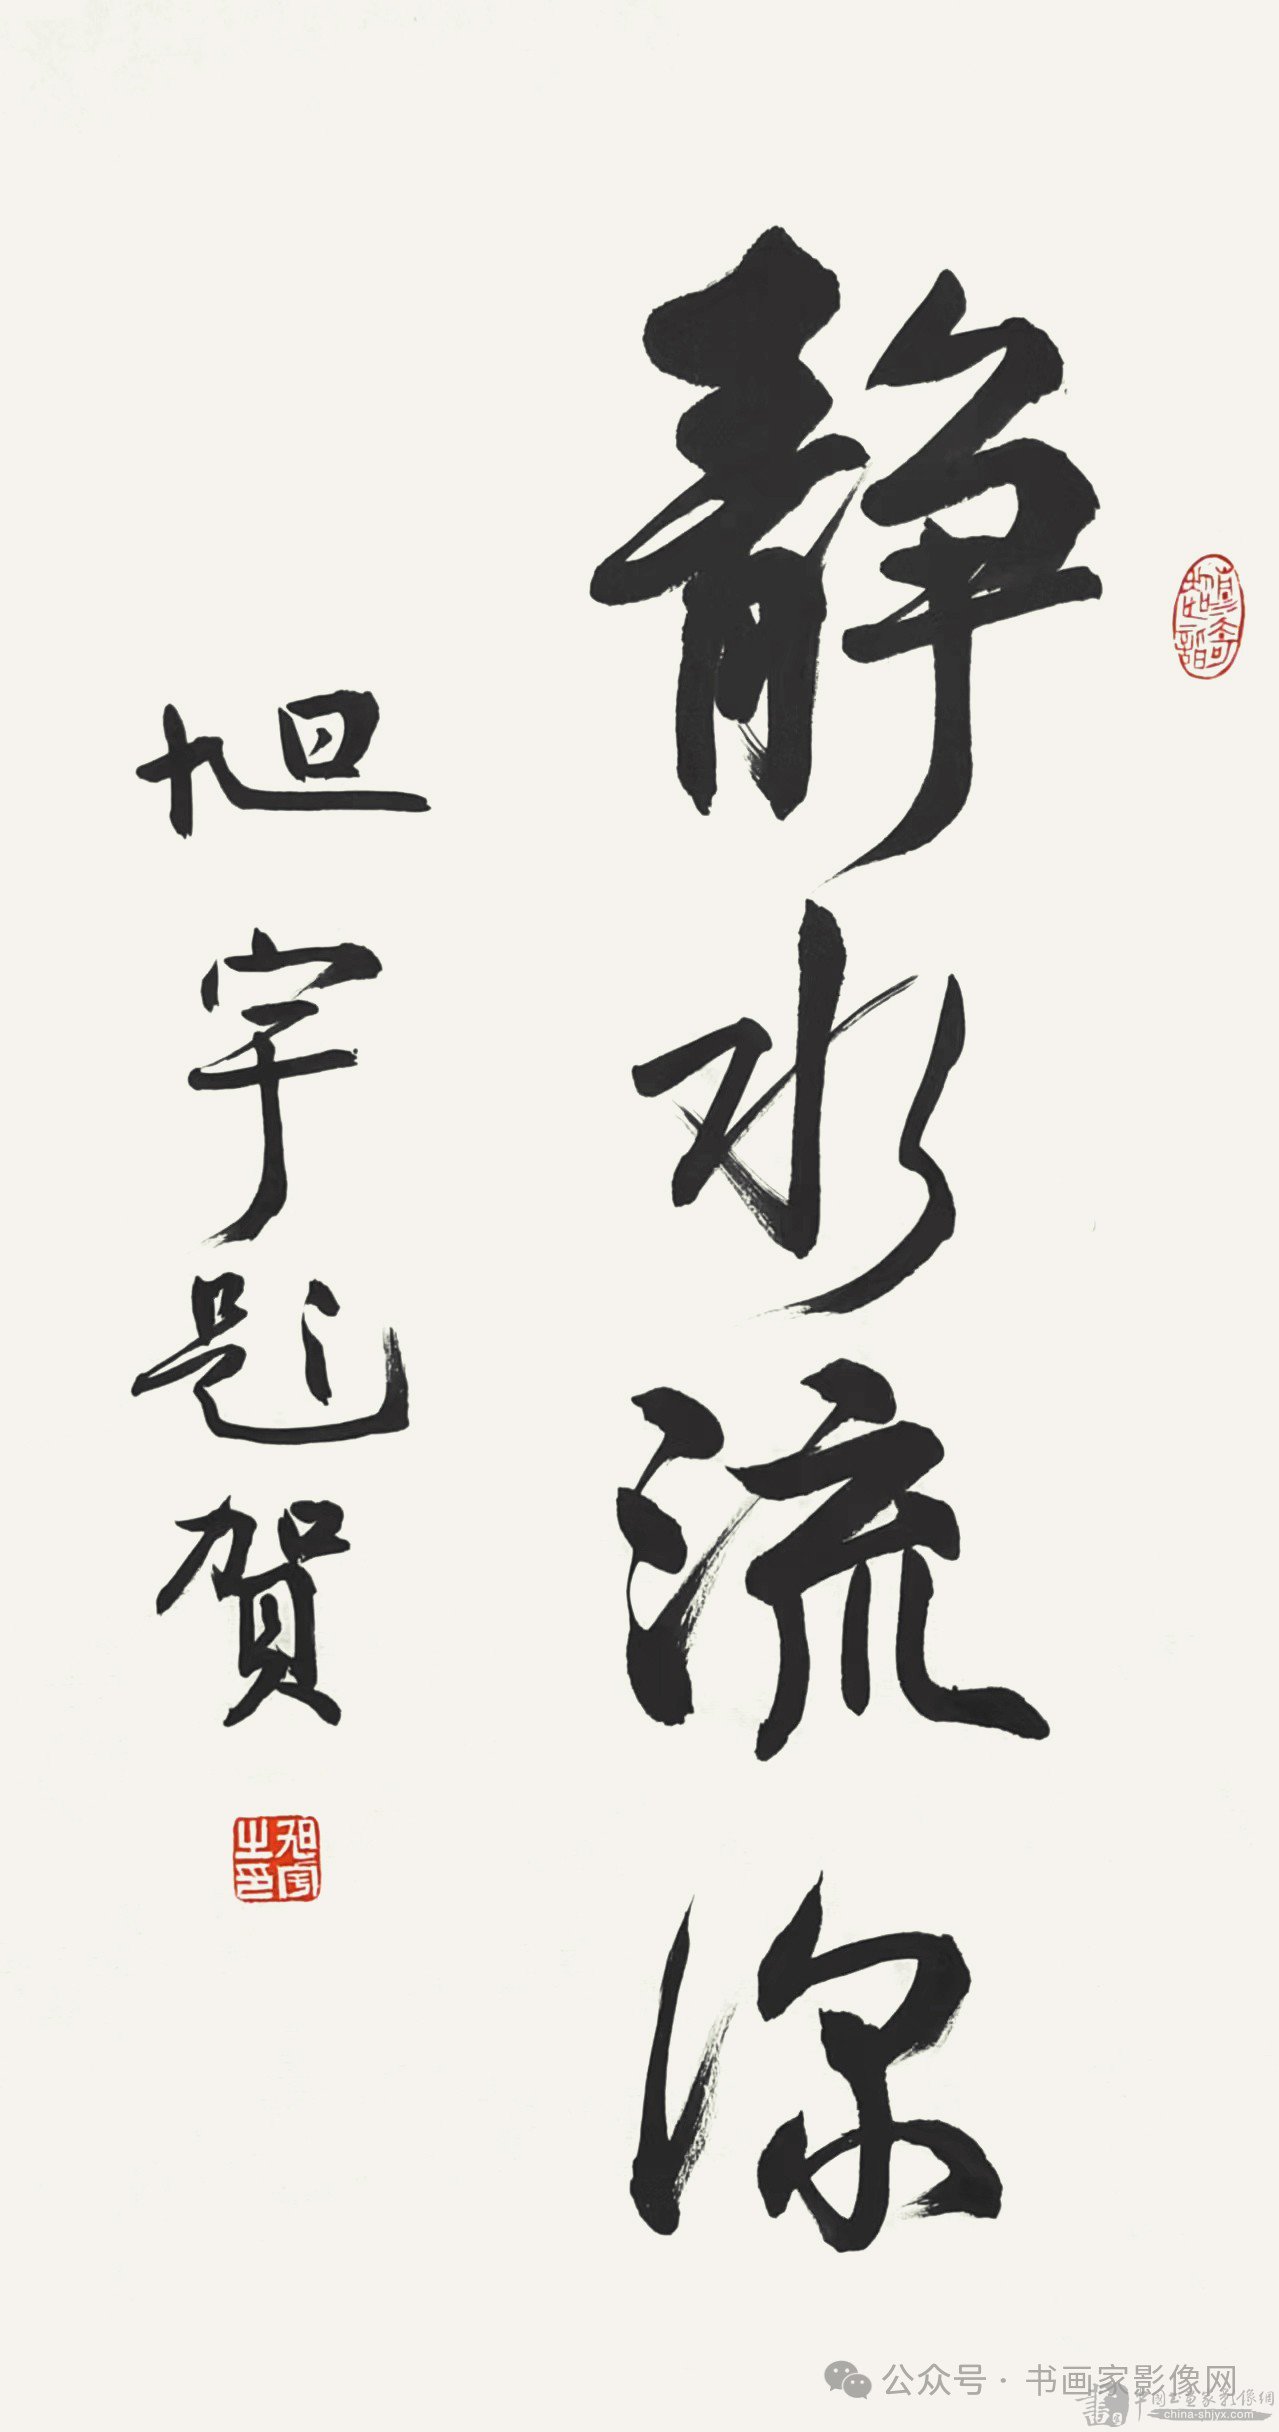 静水流深
旭宇题賀
旭宇之印
公众号·书画家影像网
中国书画家影像網
china-shjyx.com